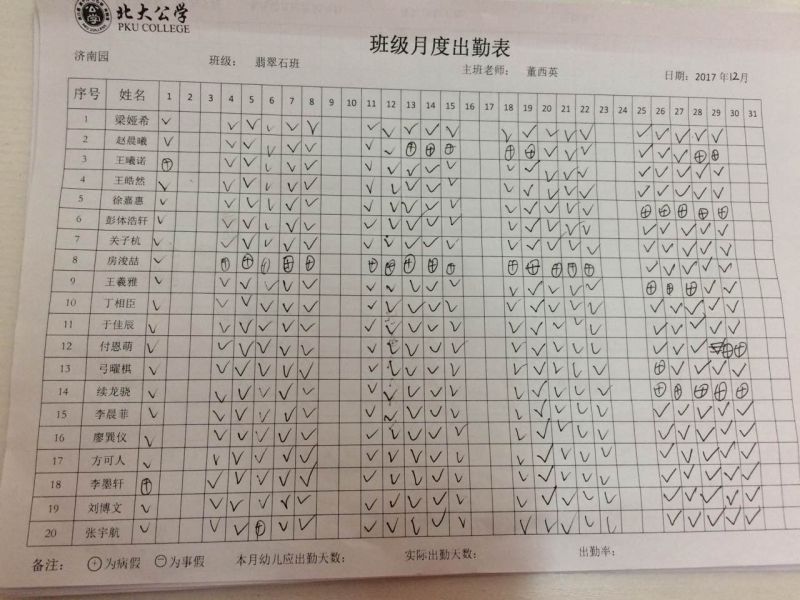 北大公学
PKU COLLEGE
班级月度出勤表
济南园 班级： 翡翠石班 主班老师： 董西英 日期：2017 年12月
序号 姓名 1 2 3 4 5 6 7 8 9 10 11 12 13 14 15 16 17 18 19 20 21 22 23 24 25 26 27 28 29 30 31
1 梁娅希
2 赵晨曦
3 王曦诺
4 王皓然
5 徐嘉惠
6 彭体浩轩
7 关子杭
8 房浚喆
9 王羲雅
10 丁相臣
11 于佳辰
12 付恩萌
13 弓曜棋
14 续龙骁
15 李晨菲
16 廖巽仪
17 方可人
18 李墨轩
19 刘博文
20 张宇航
备注： ⊕为病假 ⊖为事假 本月幼儿应出勤天数： 实际出勤天数： 出勤率：